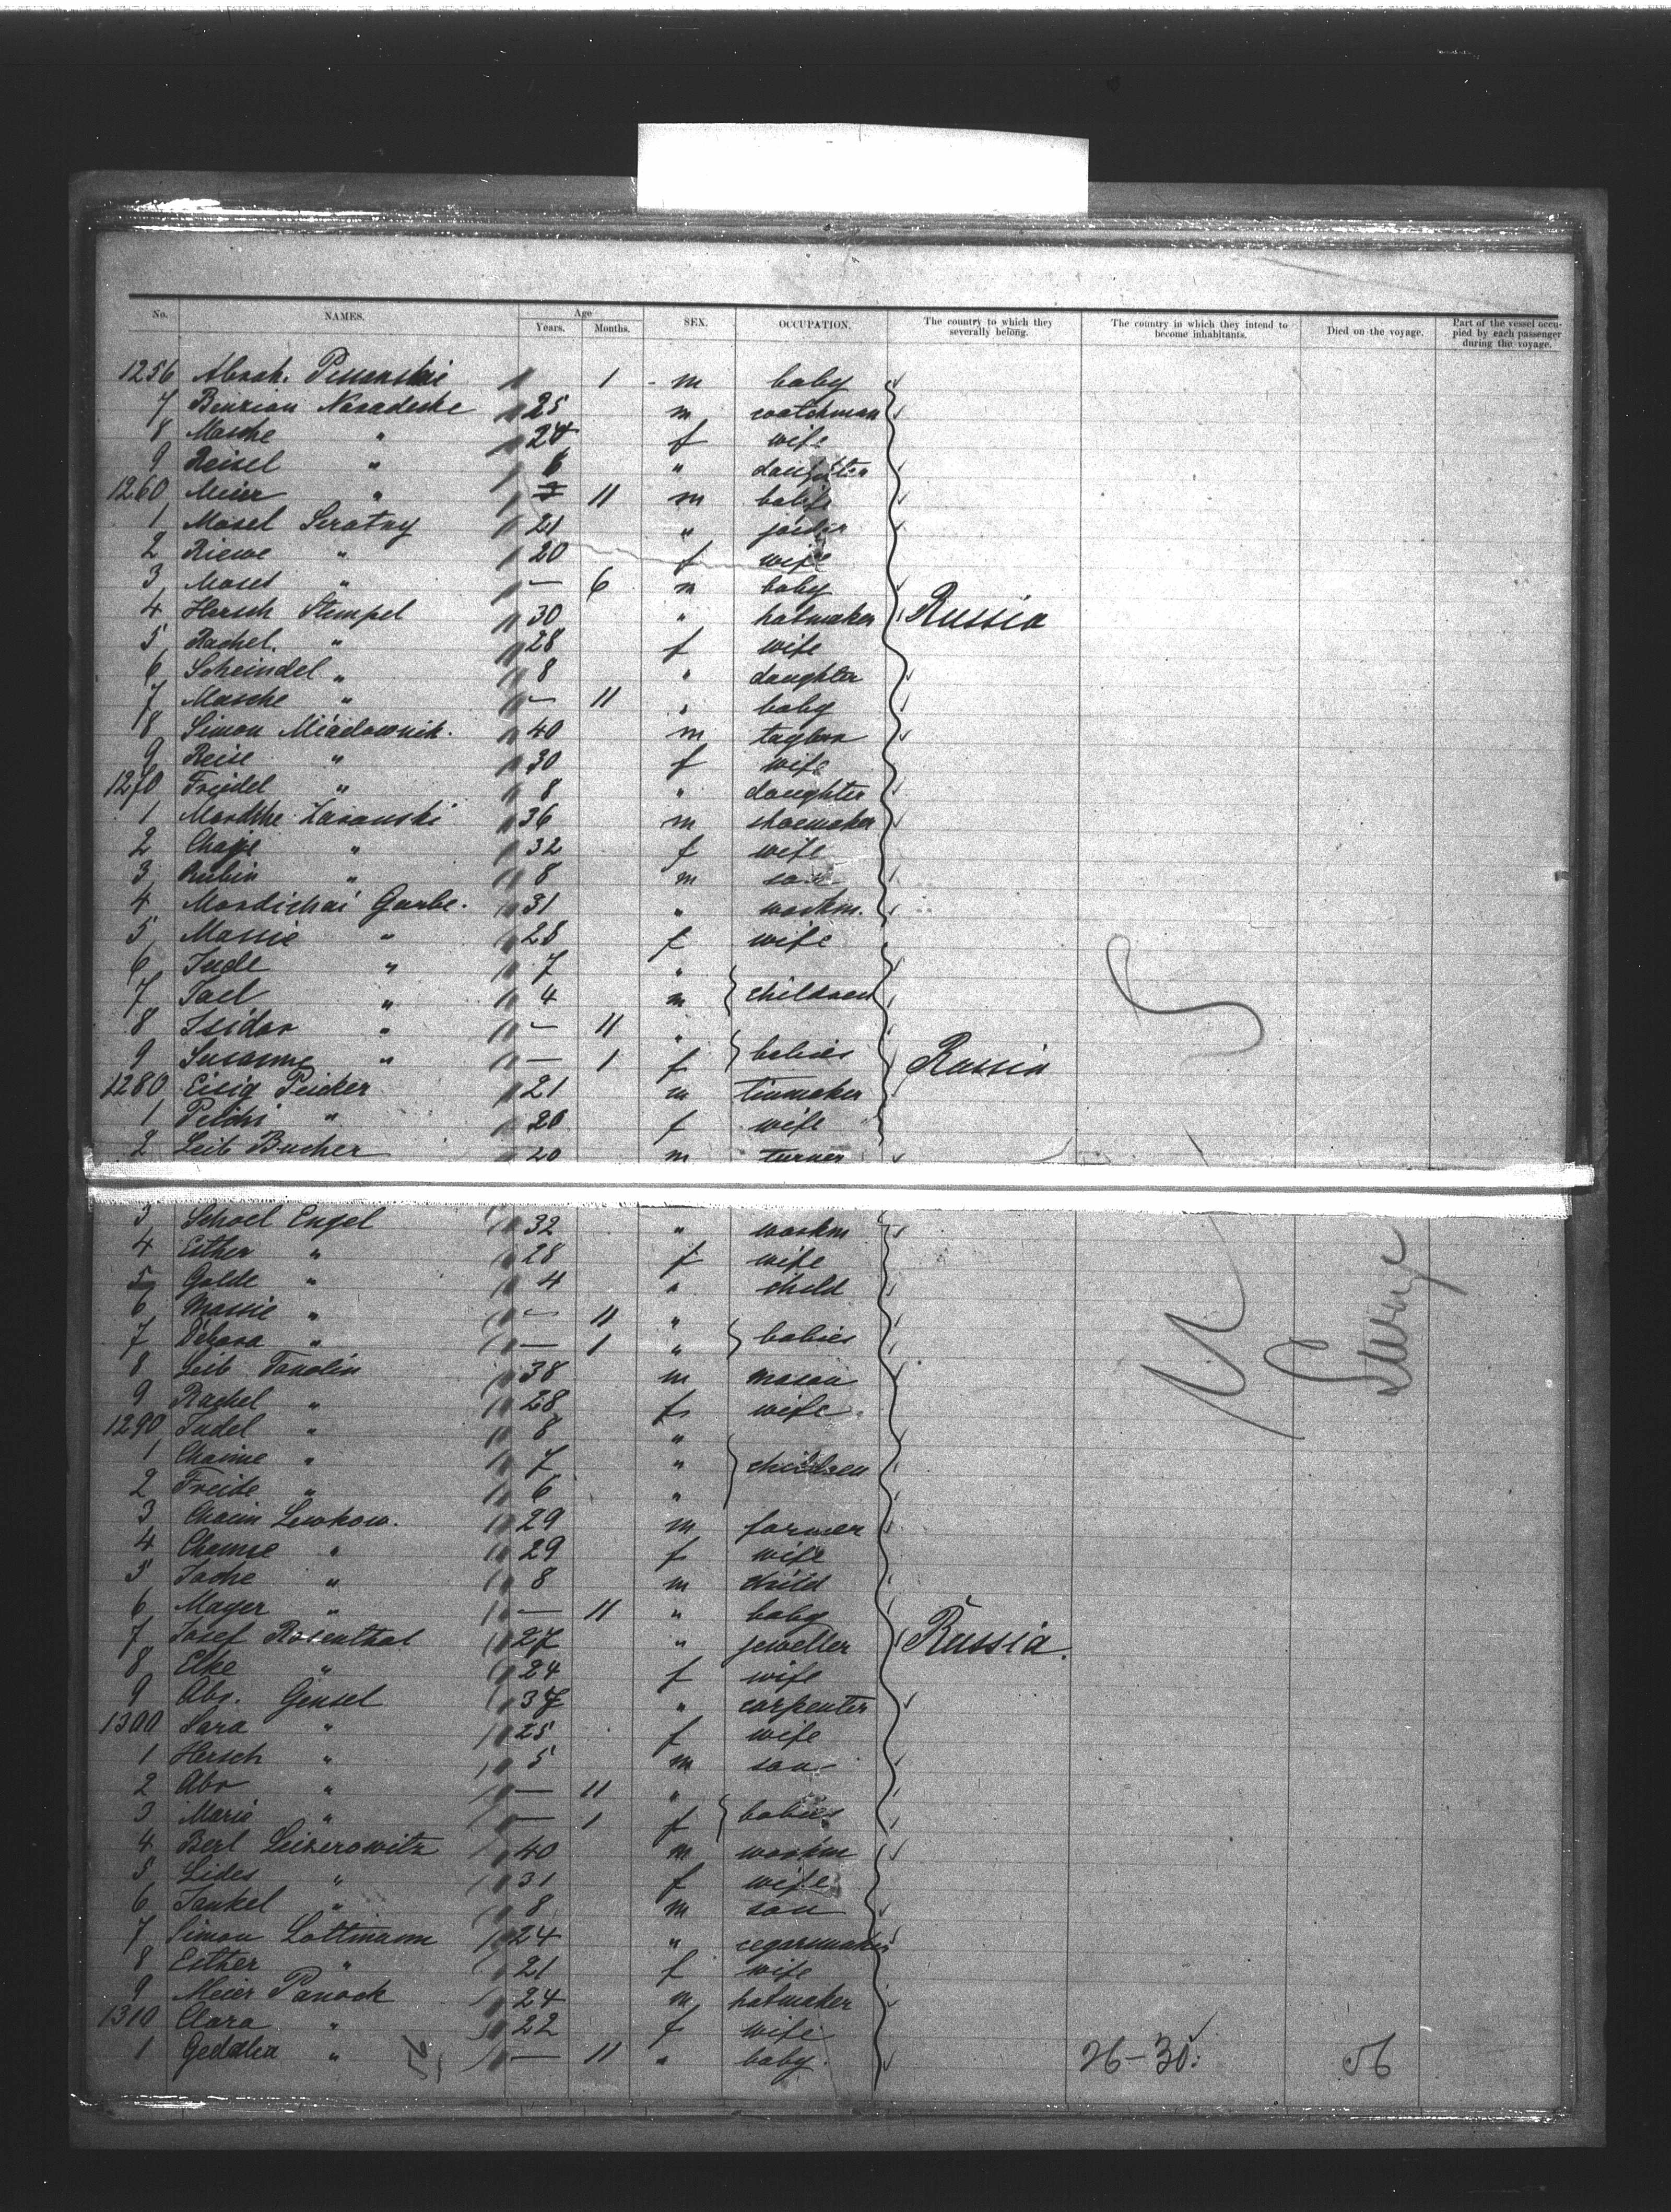 No. NAMES. Age Years. Months. SEX. OCCUPATION. The country to which they severally belong. The country in which they intend to become inhabitants. Died on the voyage. Part of the vessel occupied by each passenger during the voyage.
1256 Abrah. 1 m baby
7 Benzion 25 m watchman
8 Masche " 24 f wife
9 Reisel " 6 " daughter
1260 Meier " 11 m
1 Mosel 21 "
2 Riewe " 20 f wife
3 Moses " — 6 m baby
4 Hersch Stempel 30 " hatmaker Russia
5 Rachel. " 28 f wife
6 Scheindel " 8 " daughter
7 Masche " — 11 " baby
8 Simon Miadownik. 40 m
9 Reise " 30 f wife
1270 Freidel " 8 " daughter
1 36 m shoemaker
2 Chaje " 32 f wife
3 Rubin " 8 m son
4 Mordichai Garbe. 31 " workm.
5 Massie " 28 f wife
6 Jude " 7 "
7 Joel " 4 m children
8 Isidor " — 11 "
9 Susanne " — 1 f babies Russia
1280 Eisig Peicker 21 m tinmaker
1 " 20 f wife
2 Leib Bucher 20 m turner
3 Schoel Engel 32 " workm
4 Esther " 28 f wife
5 Golde " 4 " child
6 Massie " — 11 "
7 " — 1 " babies
8 Leib 38 m mason
9 Rachel " 28 f wife
1290 Judel " 8 "
1 Chaine " 7 " children
2 Freide " 6 "
3 Chaim Lewkow. 29 m farmer
4 " 29 f wife
5 Jache " 8 m child
6 Mayer " — 11 " baby
7 Josef Rosenthal 27 " jeweller Russia.
8 Elke " 24 f wife
9 Abr. Gensel 37 " carpenter
1300 Sara " 25 f wife
1 Hersch " 5 m son
2 Abr " — 11 "
3 Marie " — 1 f babies
4 Berl Leizerowitz 40 m workm
5 Lides " 31 f wife
6 Jankel " 8 m son
7 Simon Lottmann 24 "
8 Esther " 21 f wife
9 Meier Panock 24 m hatmaker
1310 Clara " 22 f wife
1 " — 11 " baby. 26-30: 56